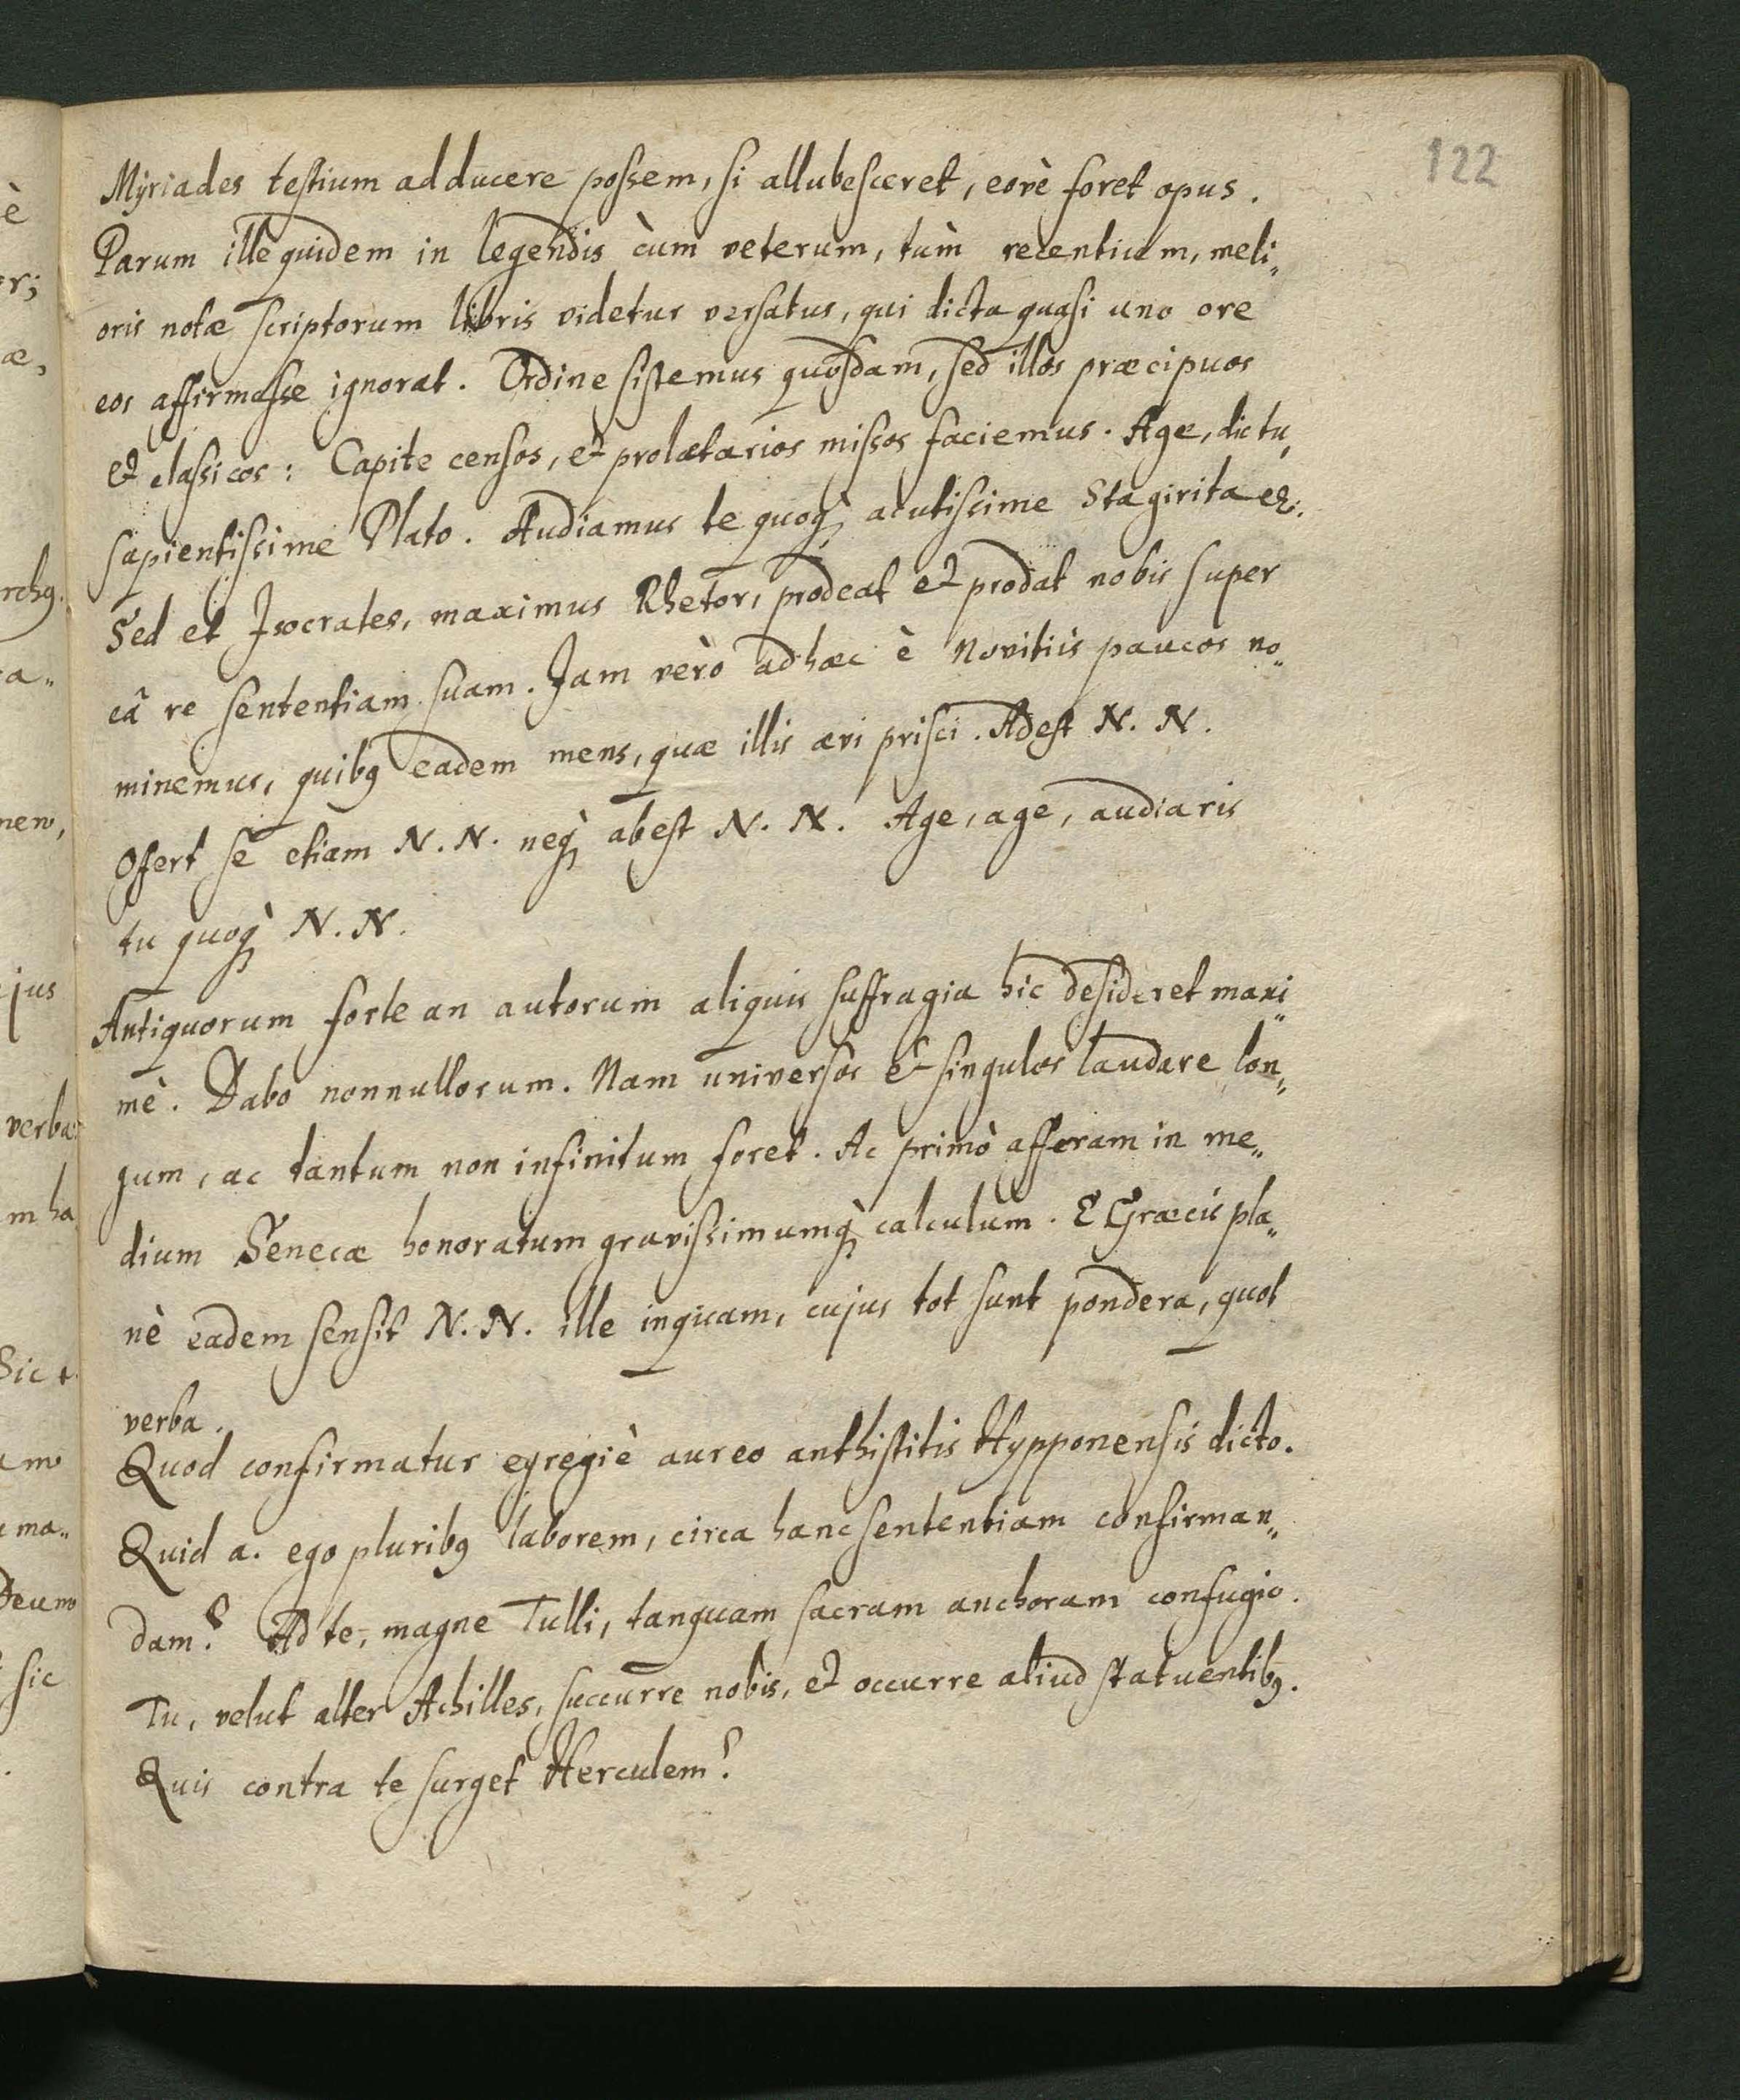 122
Myriades testium adducere possem, si allubesceret, eovè foret opus.
Parum ille quidem in legendis cùm veterum, tùm recentium, meli„
oris notæ scriptorum libris videtur versatus, qui dicta quasi uno ore
eos affirmasse ignorat. Ordine sistemus quosdam, sed illos præcipuos
et classicos: Capite censos, et prolætarios missos faciemus. Age, dic tu,
sapientissime Plato. Audiamus te quoq̀ acutissime Stagirita
Sed et Isocrates, maximus Rhetor, prodeat et prodat nobis super
eâ re sententiam suam. Jam verò adhæc è Novitiis paucos no„
minemus, quibꝯ eadem mens, quæ illis ævi prisci. Adest N. N.
Offert se etiam N. N. neq̀ abest N. N. Age, age, audiaris
tu quoq̀ N. N.
Antiquorum forte an autorum aliquis suffragia hic desideret maxi„
mè. Dabo nonnullorum. Nam universos et singulos laudare lon„
gum, ac tantum non infinitum foret. Ac primò afferam in me„
dium Senecæ honoratum gravissimumq̀ calculum. E Græcis pla„
nè eadem sensit N. N. ille inquam, cujus tot sunt pondera, quot
verba.
Quod confirmatur egregiè aureo anthistitis Hypponensis dicto.
Quid a. ego pluribꝯ laborem, circa hanc sententiam confirman„
dam? Ad te, magne Tulli, tanquam sacram anchoram confugio.
Tu, velut alter Achilles, succurre nobis, et occurre aliud statuentibꝯ.
Quis contra te surget Herculem?